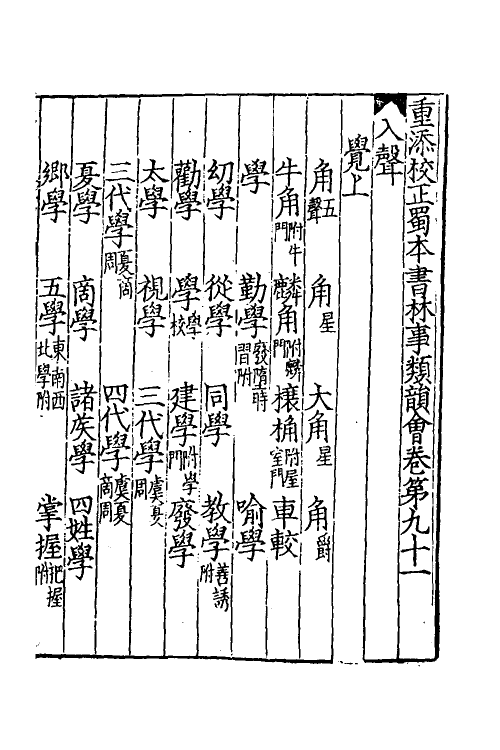 重添校正蜀本書林事類韻會卷第九十一
入聲
覺上
角五聲 角星 大角星 角爵
牛角附牛門 麟角附麟門 榱桷附屋室門 車較
學 勤學發隋時習附 喻學
幼學 從學 同學 教學善誘附
勸學 學學校 建學附學門 廢學
太學 視學 三代學虞夏周
三代學夏商周 四代學虞夏商周
夏學 商學 諸侯學 四姓學
鄉學 五學東南西北學附 掌握把握附